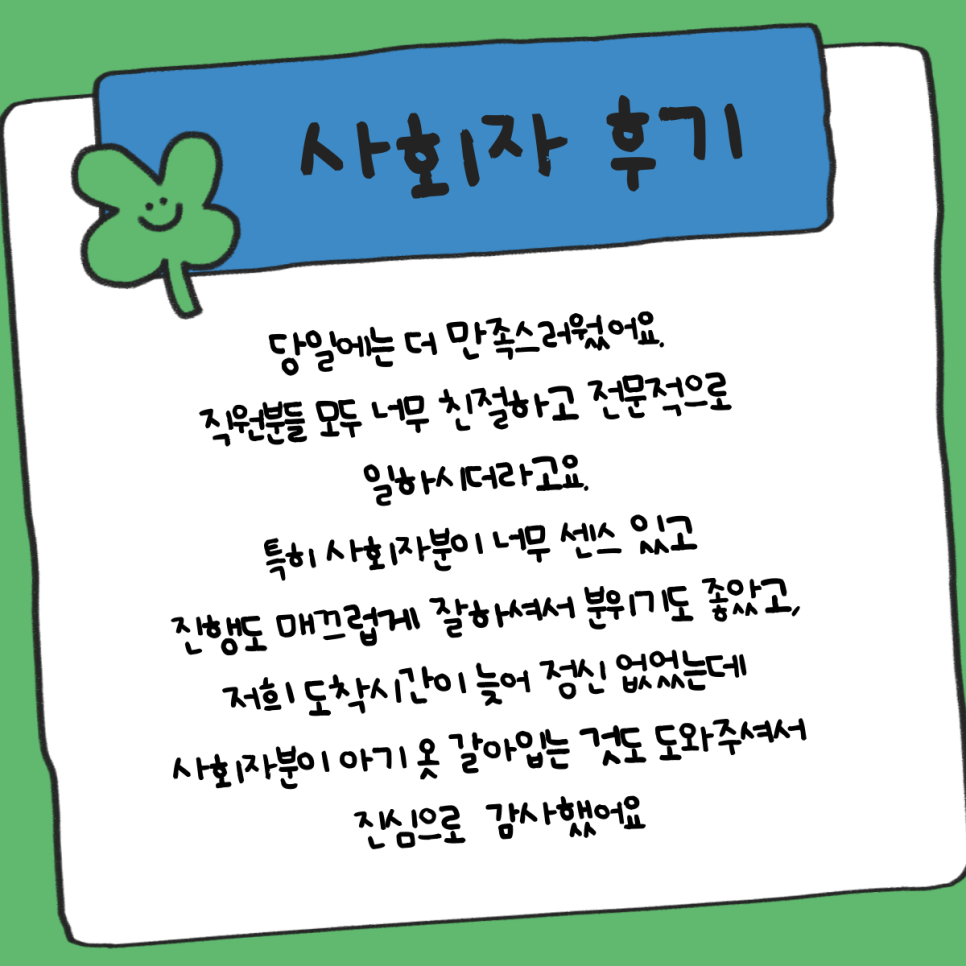 사회자 후기
당일에는 더 만족스러웠어요.
직원분들 모두 너무 친절하고 전문적으로
일하시더라고요.
특히 사회자분이 너무 센스 있고
진행도 매끄럽게 잘하셔서 분위기도 좋았고,
저희 도착시간이 늦어 정신 없었는데
사회자분이 아기 옷 갈아입는 것도 도와주셔서
진심으로 감사했어요